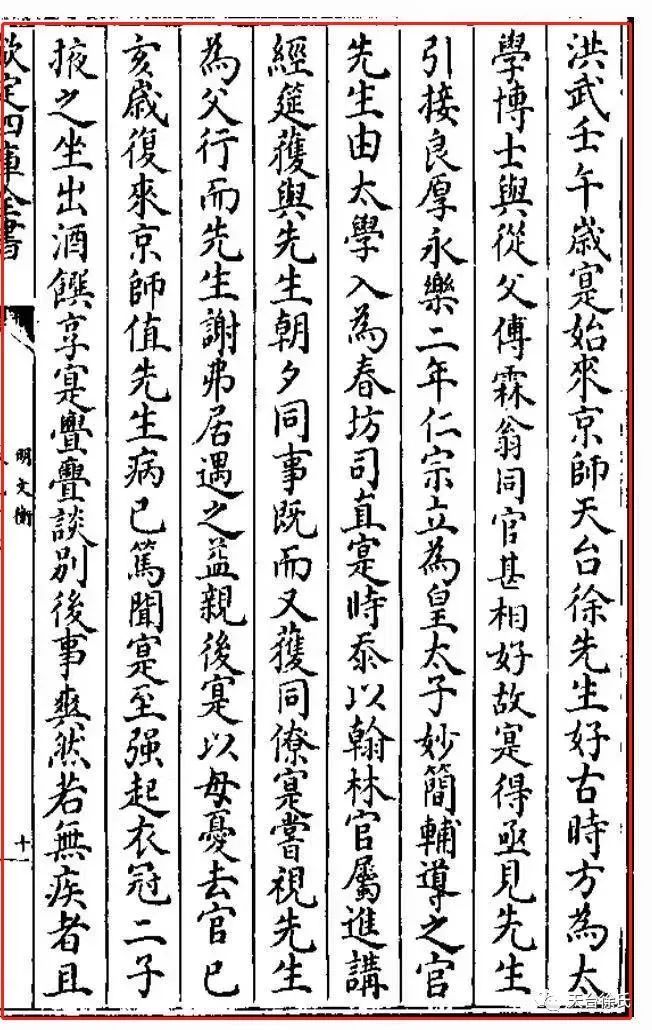 洪武壬午歲寔始來京師天台徐先生好古時方為太
學博士與從父傅霖翁同官甚相好故寔得亟見先生
引接良厚永樂二年仁宗立為皇太子妙簡輔導之官
先生由太學入為春坊司直寔時忝以翰林官屬進講
經筵獲與先生朝夕同事既而又獲同僚寔嘗視先生
為父行而先生謝弗居遇之益親後寔以母憂去官已
亥歲復來京師值先生病已篤聞寔至强起衣冠二子
掖之坐出酒饌享寔亹亹談別後事爽然若無疾者且
欽定四庫全書
明文衡
十一
天台徐氏